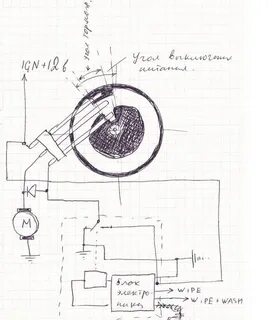 IGN+12в
Угол выключения
питания.
M
Блок
электро
ника
WIPE
WIPE + WASH